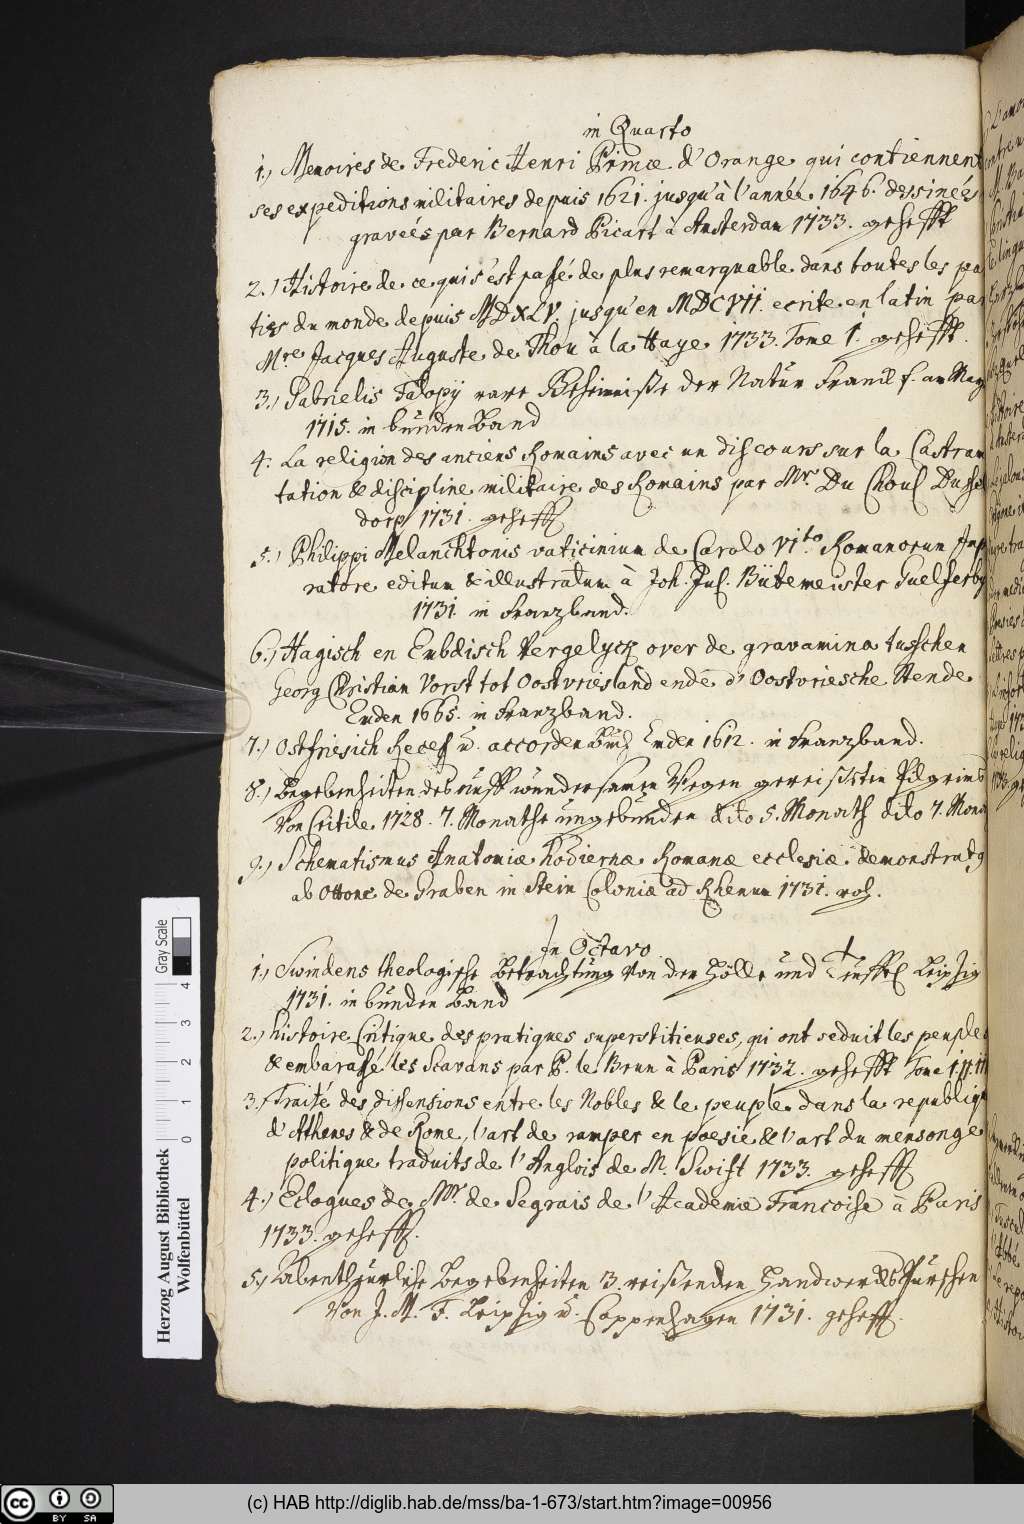 in Quarto
1.) Memoires de Frederic Henri Prince d'Orange qui contiennent
ses expeditions militaires depuis 1621. jusqu'à l'année 1646. dessineés
graveés par Bernard Picart à Amsterdam 1733. gehefft
2.) Histoire de ce qui s'est passé de plus remarquable dans toutes les par
ties du monde depuis MDXLV. jusqu'en MDCVII. ecrite en latin par
Mre Jacques Auguste de Thou à la Haye 1733. Tome 1. gehefft.
3.) Gabrielis Falopij rare Geheimniße der Natur Francf. am Mayn
1715. in bunden Band
4. La religion des anciens Romains avec un discours sur la Castrame
tation & discipline militaire des Romains par Mr. Du Choul Dussel
dorp 1731. gehefft
5.) Philippi Melanchtonis vaticinium de Carolo VIto Romanorum Impe
ratore editum & illustratum à Joh. Jus. Bütemeister Guelferby
1731. in Franzband.
6.) Hagisch en Embdisch Vergelyck over de gravamina tusschen
Georg Christian Vorst tot Oostvriesland ende d'Oostvriesche Stende
Emden 1665. in Franzband.
7.) Ostfriesich Recess u. accorden Buch Emden 1612. in Franzband.
8.) Begebenheiten des auff wundersamen Wegen gereißten Pilgrims
von Critile 1728. 7. Monathe ungebunden dito 5. Monath dito 7. Mona
9.) Schematismus Anatomiæ hodiernæ Romanæ ecclesiæ demonstratg
ab Ottone de Graben in Stein Coloniæ ad Rhenum 1731. roh.
In Octavo
1.) Swindens theologische Betrachtung von der Hölle und Teuffel Leipzig
1731. in bunden Band
2.) histoire Critique des pratiques superstitieuses, qui ont seduit les peuples
& embarassé les Scavans par P. le Brun à Paris 1732. gehefft Tome I. II. III
3.) Traité des dissensions entre les Nobles & le peuple dans la republiqu
d'Athenes & de Rome, l'art de ramper en poesie & l'art du mensonge
politique traduits de l'Anglois de M. Swift 1733. gehefft
4.) Eclogues de Mr. de Segrais de l'Academie Francoise à Paris
1733. gehefft.
5.) Abentheurliche Begebenheiten 3. reißenden Handwercks Purschen
von J. M. F. Leipzig u. Coppenhagen 1731. gehefft.
Herzog August Bibliothek
Wolfenbüttel
0 1 2 3 4
Gray Scale
cc BY SA
(c) HAB http://diglib.hab.de/mss/ba-1-673/start.htm?image=00956